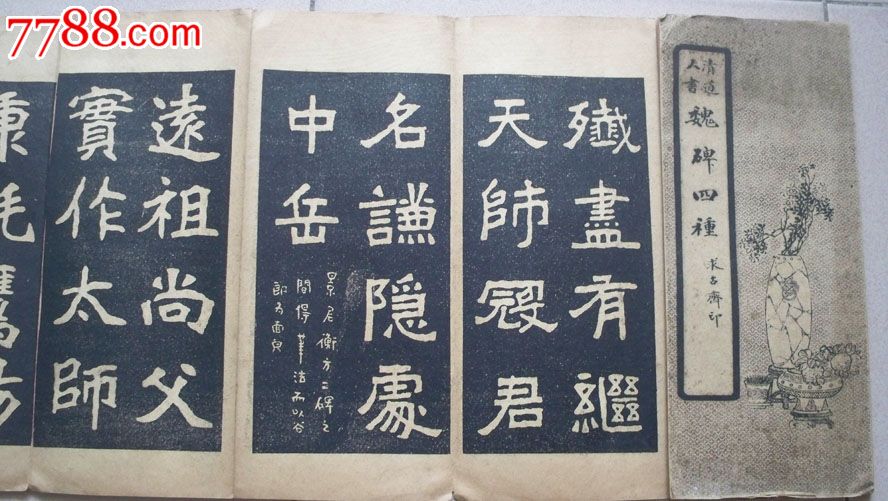 7788.com
清道
人書
魏碑四種
求古齋印
殲盡有繼
天師寇君
名謙隱處
中岳
景君衡方二碑之
間得筆法而以谷
郎為面皃
遠祖尚父
實作太師